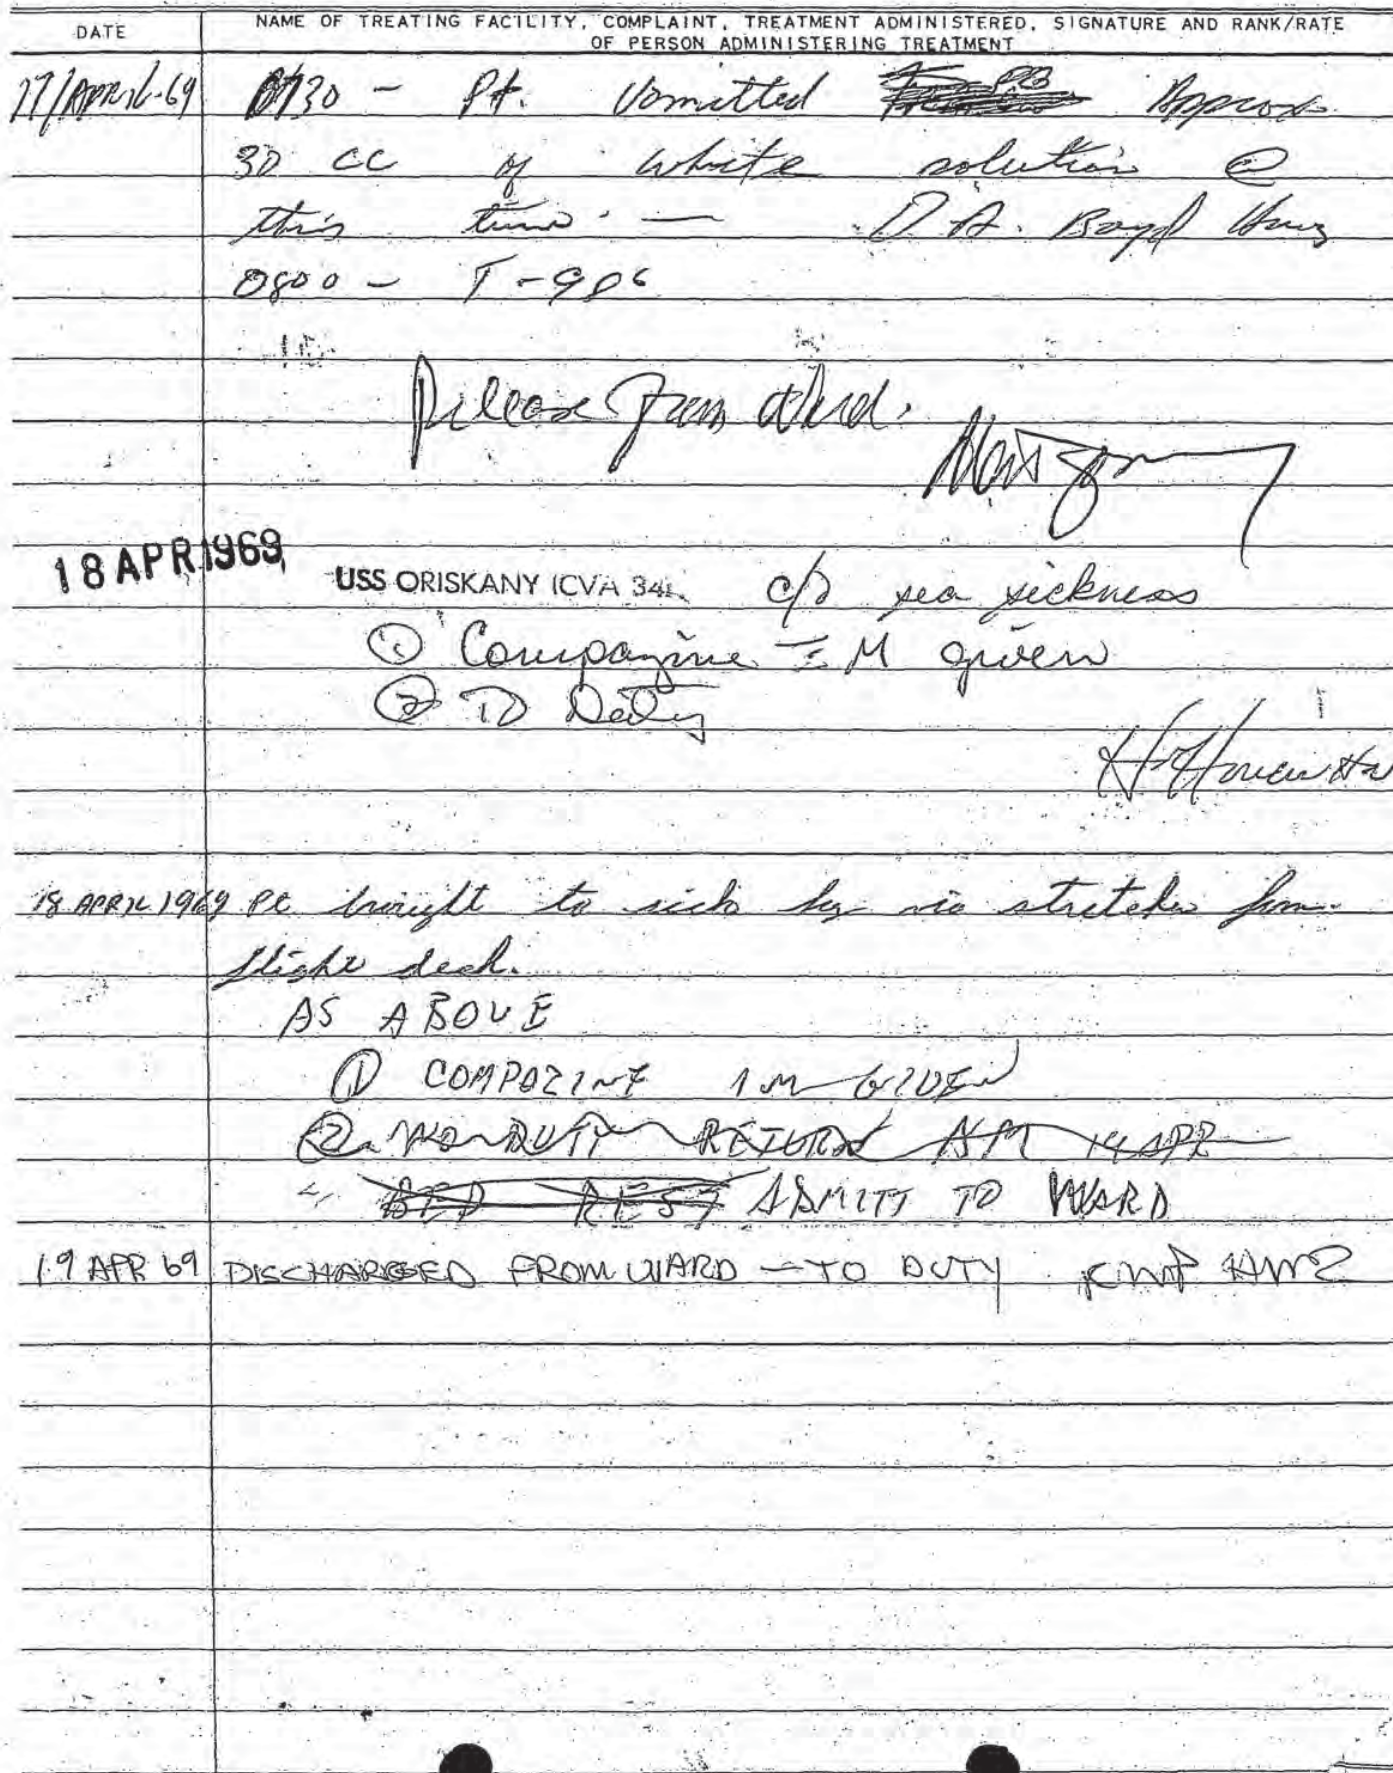 DATE
NAME OF TREATING FACILITY, COMPLAINT, TREATMENT ADMINISTERED, SIGNATURE AND RANK/RATE
OF PERSON ADMINISTERING TREATMENT
17/APRIL-69 0730 - Pt. Vomitted Approx
30 cc of white solution @
this time. — D.A. Boyd
0800 - T-98⁶
Release from Ward.
Montgomery
18 APR 1969
USS ORISKANY (CVA 34) c/o sea sickness
① Compazine IM given
② TO Duty
18 APRIL 1969 Pt brought to sick bay via stretcher from
flight deck.
AS ABOVE
① COMPOZINE IM GIVEN
② NO DUTY RETURN AM 19 APR
BED REST ADMITT TO WARD
19 APR 69 DISCHARGED FROM WARD — TO DUTY HM2